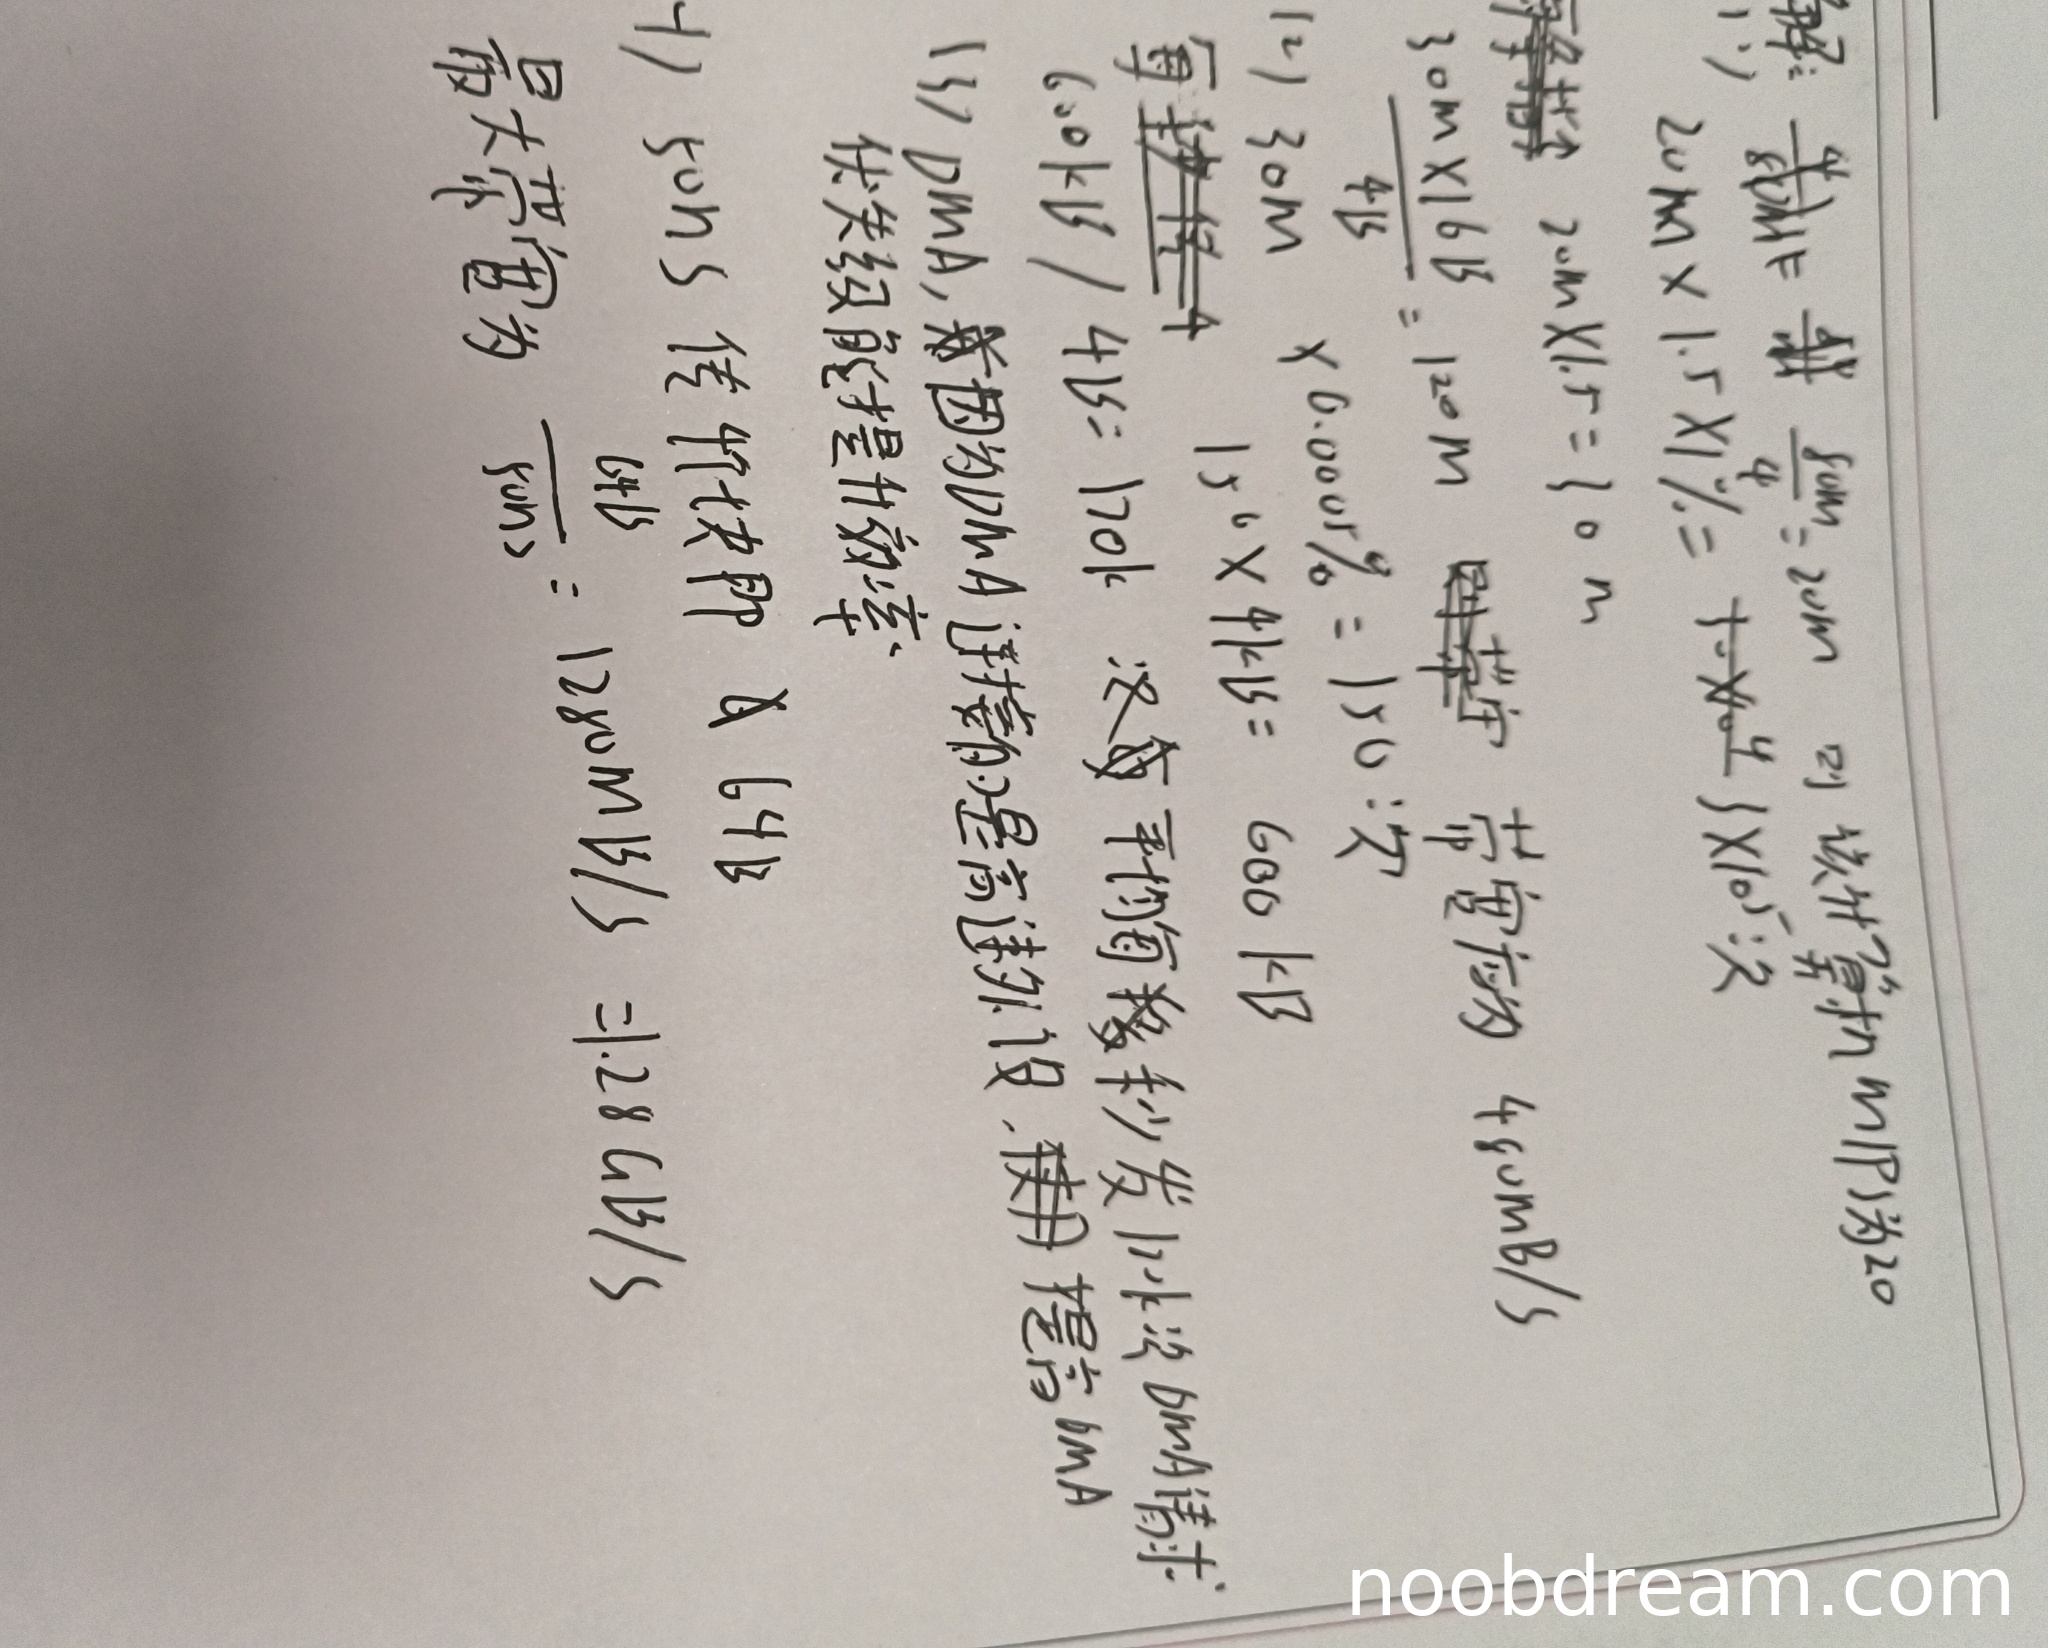 解: 80M/4=20M 则该计算机MIPS为20
(1) 20M×1.5×1%= 3×10⁵次
20M×1.5=30M
30M×16B/4B=120M 带宽应为 480MB/s
(2) 30M ×0.0005%=150次
150×4KB=600KB
600KB/4B=150K 次 平均每秒发150K次DMA请求
(3) DMA, 因为DMA连接的是高速外设, 提高DMA
优先级能提升效率.
4) 50ns 传 4个块即 × 64B
最大带宽为 64B/50ns = 1280MB/s =1.28GB/s
noobdream.com